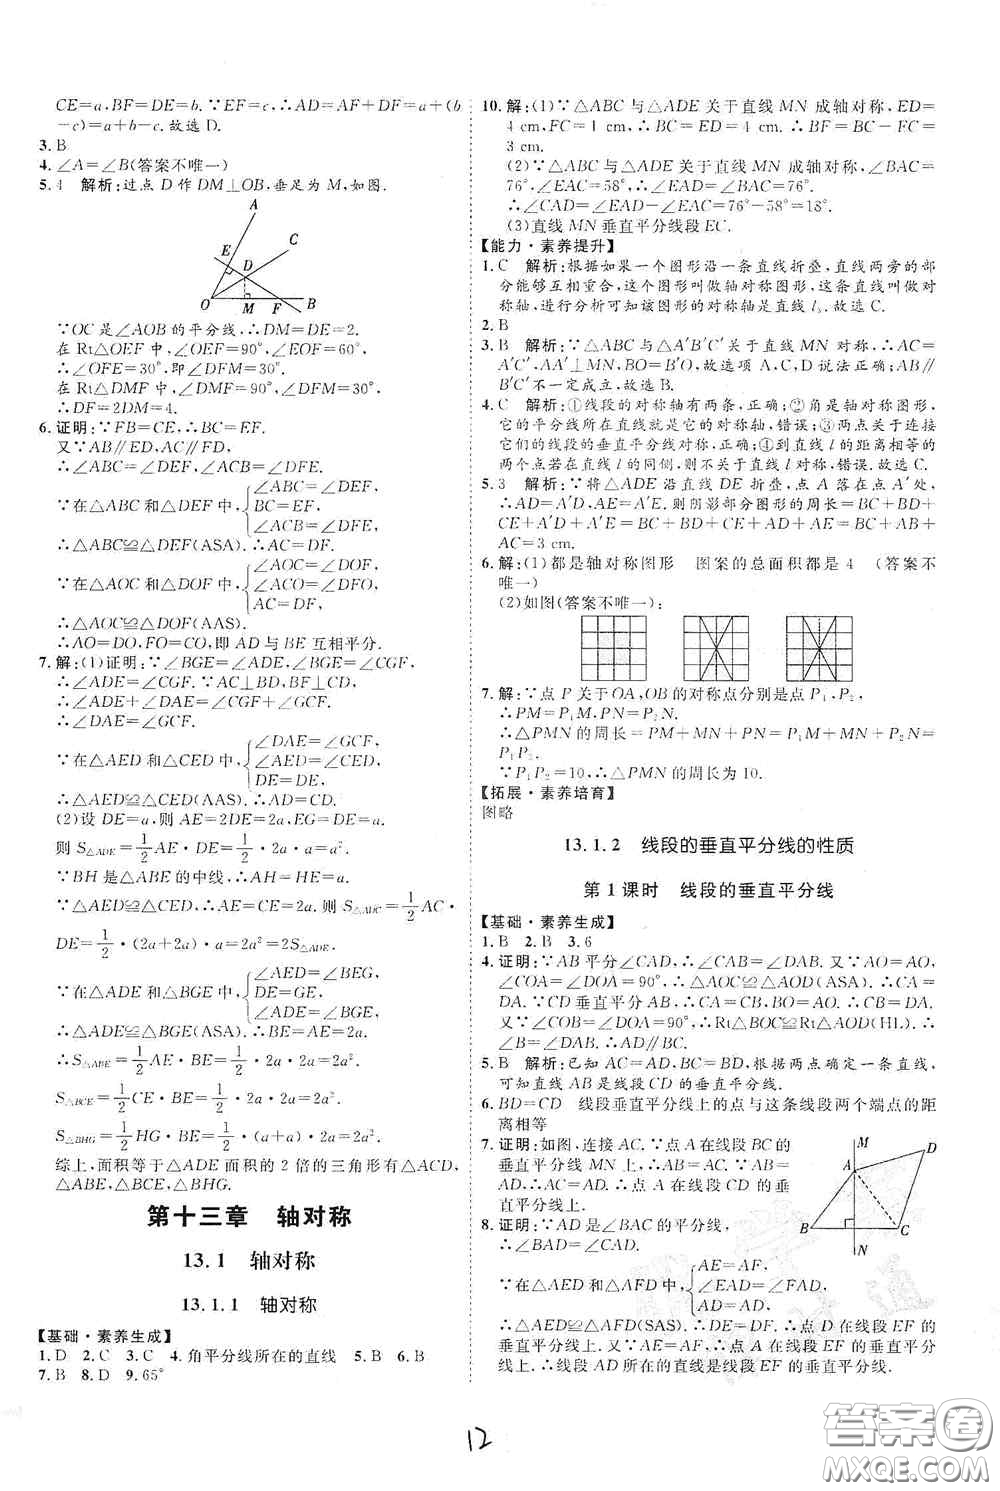 CE=a,BF=DE=b.∵EF=c,∴AD=AF+DF=a+(b
-c)=a+b-c.故选 D.
3. B
4. ∠A=∠B(答案不唯一)
5. 4 解析:过点 D 作 DM⊥OB,垂足为 M,如图.
A
C
E
D
O
M
F
B
∵OC 是∠AOB 的平分线,∴DM=DE=2.
在 Rt△OEF 中,∠OEF=90°,∠EOF=60°,
∴∠OFE=30°,即∠DFM=30°.
在 Rt△DMF 中,∠DMF=90°,∠DFM=30°,
∴DF=2DM=4.
6. 证明:∵FB=CE,∴BC=EF.
又∵AB∥ED,AC∥FD,
∴∠ABC=∠DEF,∠ACB=∠DFE.
∵在△ABC 和△DEF 中,{∠ABC=∠DEF,
BC=EF,
∠ACB=∠DFE,
∴△ABC≌△DEF(ASA).∴AC=DF.
∵在△AOC 和△DOF 中,{∠AOC=∠DOF,
∠ACO=∠DFO,
AC=DF,
∴△AOC≌△DOF(AAS).
∴AO=DO,FO=CO,即 AD 与 BE 互相平分.
7. 解:(1)证明:∵∠BGE=∠ADE,∠BGE=∠CGF,
∴∠ADE=∠CGF.∵AC⊥BD,BF⊥CD,
∴∠ADE+∠DAE=∠CGF+∠GCF.
∴∠DAE=∠GCF.
∵在△ADE 和△CDE 中,{∠DAE=∠GCF,
∠AED=∠CED,
DE=DE,
∴△AED≌△CED(AAS).∴AD=CD.
(2)设 DE=a,则 AE=2DE=2a,EG=DE=a.
则 S△ADE=1/2 AE·DE=1/2·2a·a=a².
∵BH 是△ABE 的中线,∴AH=HE=a.
∵△AED≌△CED,∴AE=CE=2a.则 S△ADC=1/2 AC·
DE=1/2·(2a+2a)·a=2a²=2S△ADE.
∵在△ADE 和△BGE 中,{∠AED=∠BEG,
DE=GE,
∠ADE=∠BGE,
∴△ADE≌△BGE(ASA).∴BE=AE=2a.
∴S△ABE=1/2 AE·BE=1/2·2a·2a=2a².
S△BCE=1/2 CE·BE=1/2·2a·2a=2a².
S△BHG=1/2 HG·BE=1/2·(a+a)·2a=2a².
综上,面积等于△ADE 面积的 2 倍的三角形有△ACD,
△ABE,△BCE,△BHG.
第十三章 轴对称
13.1 轴对称
13.1.1 轴对称
【基础·素养生成】
1. D 2. C 3. C 4. 角平分线所在的直线 5. B 6. B
7. B 8. D 9. 65°
10. 解:(1)∵△ABC 与△ADE 关于直线 MN 成轴对称,ED=
4 cm,FC=1 cm,∴BC=ED=4 cm.∴BF=BC-FC=
3 cm.
(2)∵△ABC 与△ADE 关于直线 MN 成轴对称,∠BAC=
76°,∠EAC=58°,∴∠EAD=∠BAC=76°.
∴∠CAD=∠EAD-∠EAC=76°-58°=18°.
(3)直线 MN 垂直平分线段 EC.
【能力·素养提升】
1. C 解析:根据如果一个图形沿一条直线折叠,直线两旁的部
分能够互相重合,这个图形叫做轴对称图形,这条直线叫做对
称轴,进行分析可知该图形的对称轴是直线 l₃.故选 C.
2. B
3. B 解析:∵△ABC 与△A′B′C′关于直线 MN 对称,∴AC=
A′C′,AA′⊥MN,BO=B′O.故选项 A,C,D 说法正确;AB∥
B′C′不一定成立,故选 B.
4. C 解析:①线段的对称轴有两条,正确;②角是轴对称图形,
它的平分线所在直线就是它的对称轴,错误;③两点关于连接
它们的线段的垂直平分线对称,正确;④到直线 l 的距离相等的
两个点若在直线 l 的同侧,则不关于直线 l 对称,错误.故选 C.
5. 3 解析:∵将△ADE 沿直线 DE 折叠,点 A 落在点 A′处,
∴AD=A′D,AE=A′E.则阴影部分图形的周长=BC+BD+
CE+A′D+A′E=BC+BD+CE+AD+AE=BC+AB+
AC=3 cm.
6. 解:(1)都是轴对称图形 图案的总面积都是 4 (答案不
唯一)
(2)如图(答案不唯一):
7. 解:∵点 P 关于 OA,OB 的对称点分别是点 P₁,P₂,
∴PM=P₁M,PN=P₂N.
∴△PMN 的周长=PM+MN+PN=P₁M+MN+P₂N=
P₁P₂.
∵P₁P₂=10,∴△PMN 的周长为 10.
【拓展·素养培育】
图略
13.1.2 线段的垂直平分线的性质
第 1 课时 线段的垂直平分线
【基础·素养生成】
1. B 2. B 3. 6
4. 证明:∵AB 平分∠CAD,∴∠CAB=∠DAB.又∵AO=AO,
∠COA=∠DOA=90°,∴△AOC≌△AOD(ASA).∴CA=
DA.∵CD 垂直平分 AB,∴CA=CB,BO=AO.∴CB=DA.
又∵∠COB=∠DOA=90°,∴Rt△BOC≌Rt△AOD(HL).∴
∠B=∠DAB.∴AD∥BC.
5. B 解析:已知 AC=AD,BC=BD,根据两点确定一条直线,
可知直线 AB 是线段 CD 的垂直平分线.
6. BD=CD 线段垂直平分线上的点与这条线段两个端点的距
离相等
7. 证明:如图,连接 AC.∵点 A 在线段 BC 的
垂直平分线 MN 上,∴AB=AC.又∵AB=
AD,∴AC=AD.∴点 A 在线段 CD 的垂直
平分线上.
M
D
A
B
C
N
8. 证明:∵AD 是∠BAC 的平分线,
∴∠BAD=∠CAD.
∵在△AED 和△AFD 中,{AE=AF,
∠EAD=∠FAD,
AD=AD,
∴△AED≌△AFD(SAS).∴DE=DF.∴点 D 在线段 EF 的
垂直平分线上.又∵AE=AF,∴点 A 在线段 EF 的垂直平分
线上.∴直线 AD 所在的直线是线段 EF 的垂直平分线.
12
答案卷
MXQE.COM